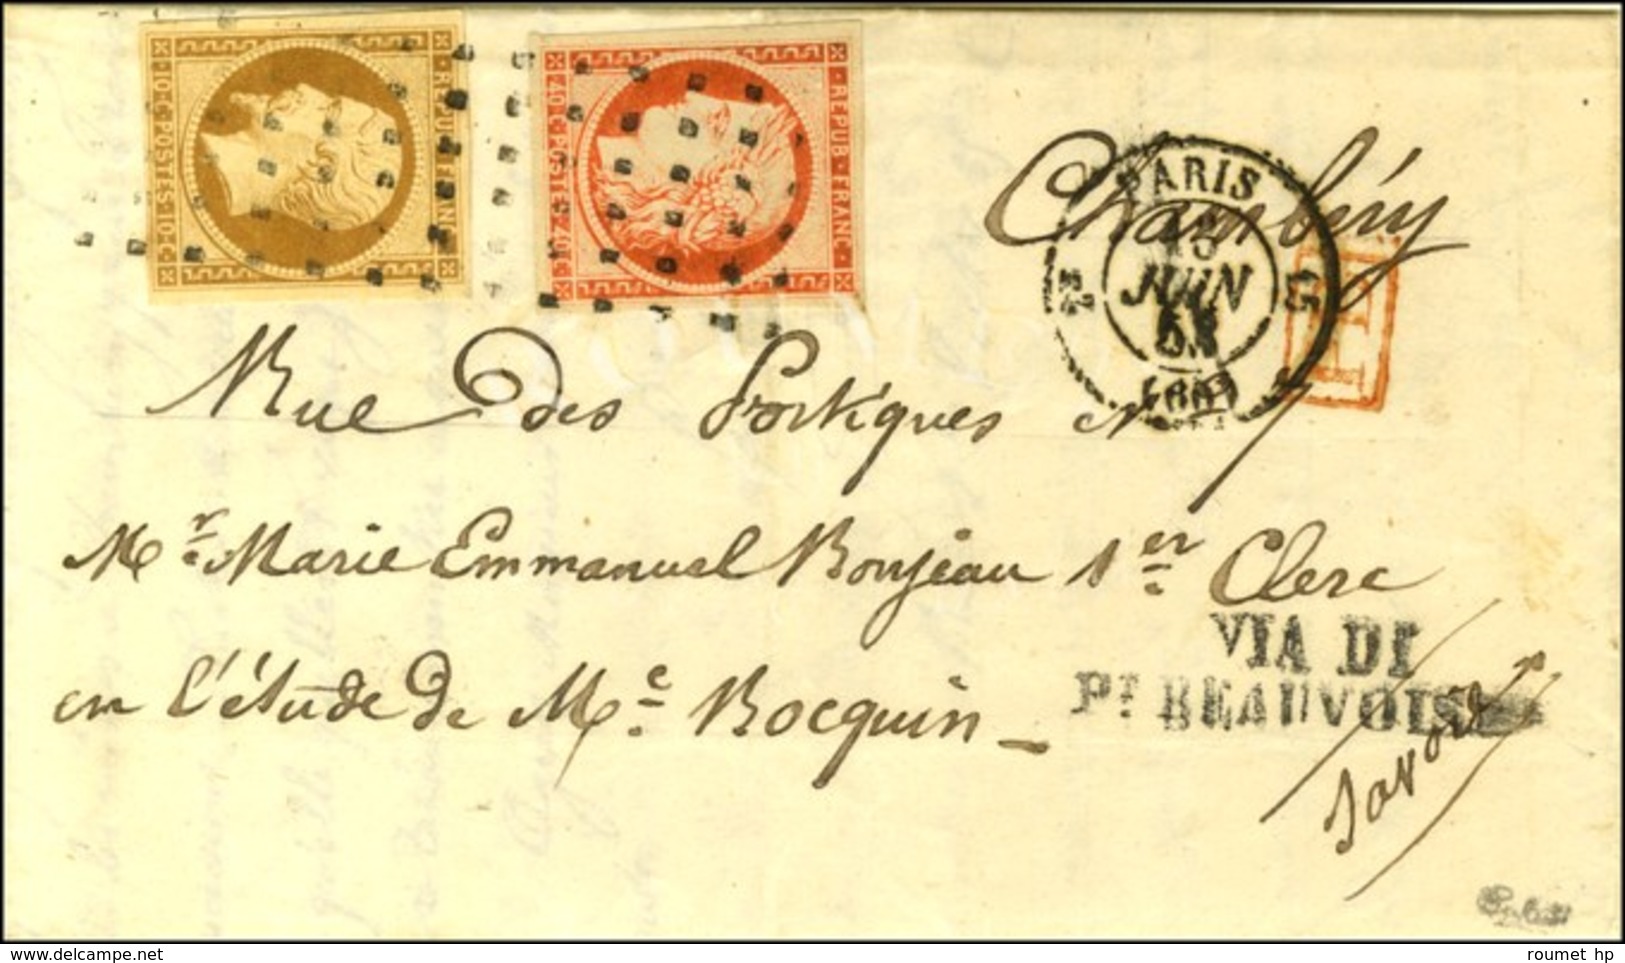 10·C·POSTES·10·C·
REPUB FRANC
40·C·POSTES·40·C·
REPUB·FRANC·
Chambéry
PARIS
15
JUIN
53
(60)
P.P.
Rue des Portiques N° 7
Mr. Marie Emmanuel Bonjean 1er. Clerc
en l'étude de Me. Bocquin
VIA DI
PT BEAUVOISIN
Savoie
www.delcampe.net
roumet hp